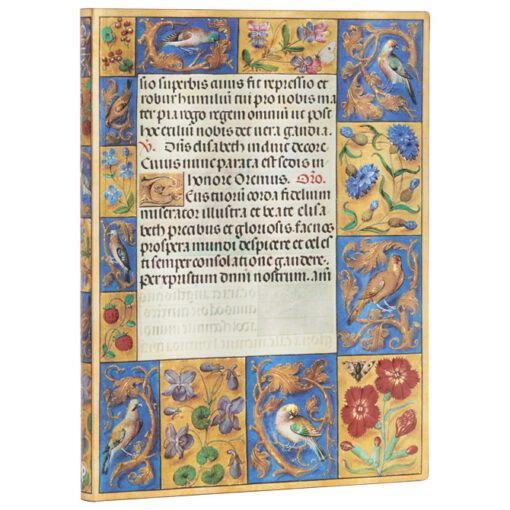 sio superbis cuius fit repressio et
robur humiliū cui pro nobis ma
ter pia rogo regem omniū ut post
hoc exiliū nobis det vera gaudia.
V. Dn̄s elisabeth induit decore
Cuius nunc parata est sedis in
honore Oremus. Oro.
Eus tuorū corda fidelium
miserator illustra et beate elisa
beth precibus et gloriosis fac nos
prospera mundi despicere et celes
ti semper consolatione gaudere.
Per xpristum dnm̄ nostrum. am̄